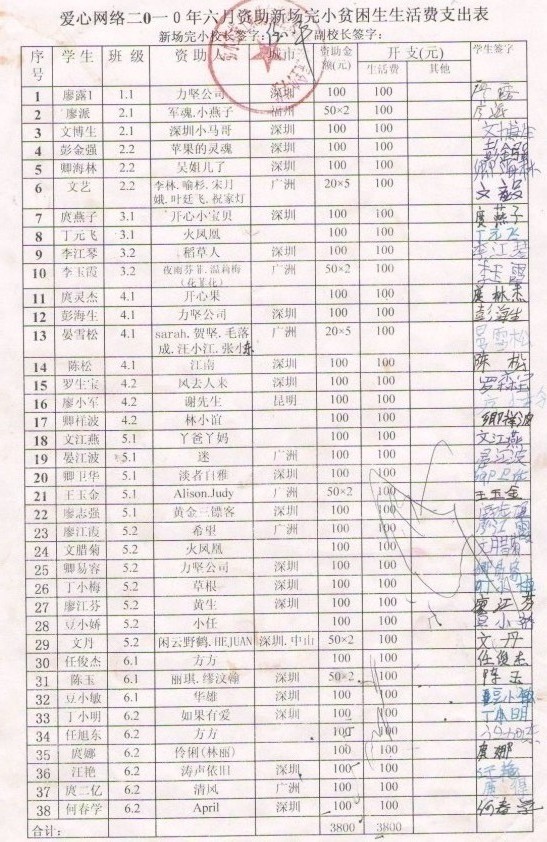 爱心网络二0一0年六月资助新场完小贫困生生活费支出表
新场完小校长签字: 副校长签字:
序号 学生 班级 资助人 城市 资助金额(元) 开支(元) 生活费 其他 学生签字
1 廖露1 1.1 力坚公司 深圳 100 100
2 廖派 2.1 军魂.小燕子 福州 50×2 100
3 文博生 2.1 深圳小马哥 深圳 100 100 文博生
4 彭金强 2.2 苹果的灵魂 深圳 100 100
5 卿海林 2.2 吴姐儿了 深圳 100 100 卿海林
6 文艺 2.2 李林.喻杉.宋月 广洲 20×5 100
娥.叶廷飞.祝家灯
7 庹燕子 3.1 开心小宝贝 深圳 100 100 庹燕子
8 丁元飞 3.1 火凤凰 100 100 丁元飞
9 李江琴 3.2 稻草人 深圳 100 100 李江琴
10 李玉霞 3.2 夜南芬菲.温莉梅 广洲 50×2 100 李玉霞
11 庹灵杰 4.1 开心果 100 100 庹林杰
12 彭海生 4.1 力坚公司 深圳 100 100 彭海生
13 晏雪松 4.1 sarah.贺坚.毛落 广洲 20×5 100 晏雪松
成.汪小江.张小东
14 陈松 4.1 江南 深圳 100 100 陈松
15 罗生宝 4.2 风去人未 深圳 100 100 罗森宝
16 廖小军 4.2 谢先生 昆明 100 100
17 卿样波 4.2 林小谊 100 100 卿祥波
18 文江燕 5.1 丫爸丫妈 100 100 文江燕
19 晏江波 5.1 迷 广洲 100 100 晏江波
20 卿卫华 5.1 淡者自雅 深圳 100 100
21 王玉金 5.1 Alison.Judy 广洲 50×2 100 王玉金
22 廖志强 5.1 黄金三镖客 深圳 100 100
23 廖江霞 5.2 希望 广洲 100 100 廖江霞
24 文腊菊 5.2 火凤凰 100 100 文腊菊
25 卿易容 5.2 力坚公司 深圳 100 100
26 丁小梅 5.2 草根 深圳 100 100
27 廖江芬 5.2 黄生 深圳 100 100 廖江芬
28 豆小娇 5.2 小任 100 100 豆小娇
29 文丹 5.2 闲云野鹤.HEJUAN 深圳.中山 50×2 100 文丹
30 任俊杰 6.1 方方 100 100 任俊杰
31 陈玉 6.1 丽琪.缪汶翰 深圳 50×2 100 陈玉
32 豆小敏 6.1 华雄 深圳 100 100 豆小敏
33 丁小明 6.2 如果有爱 深圳 100 100 丁小明
34 任旭东 6.2 方方 100 100
35 庹娜 6.2 伶俐(林丽) 100 100 庹娜
36 汪艳 6.2 涛声依旧 深圳 100 100 汪艳
37 庹二亿 6.2 清风 广洲 100 100
38 何春学 6.2 April 深圳 100 100 何春学
合计: 3800 3800